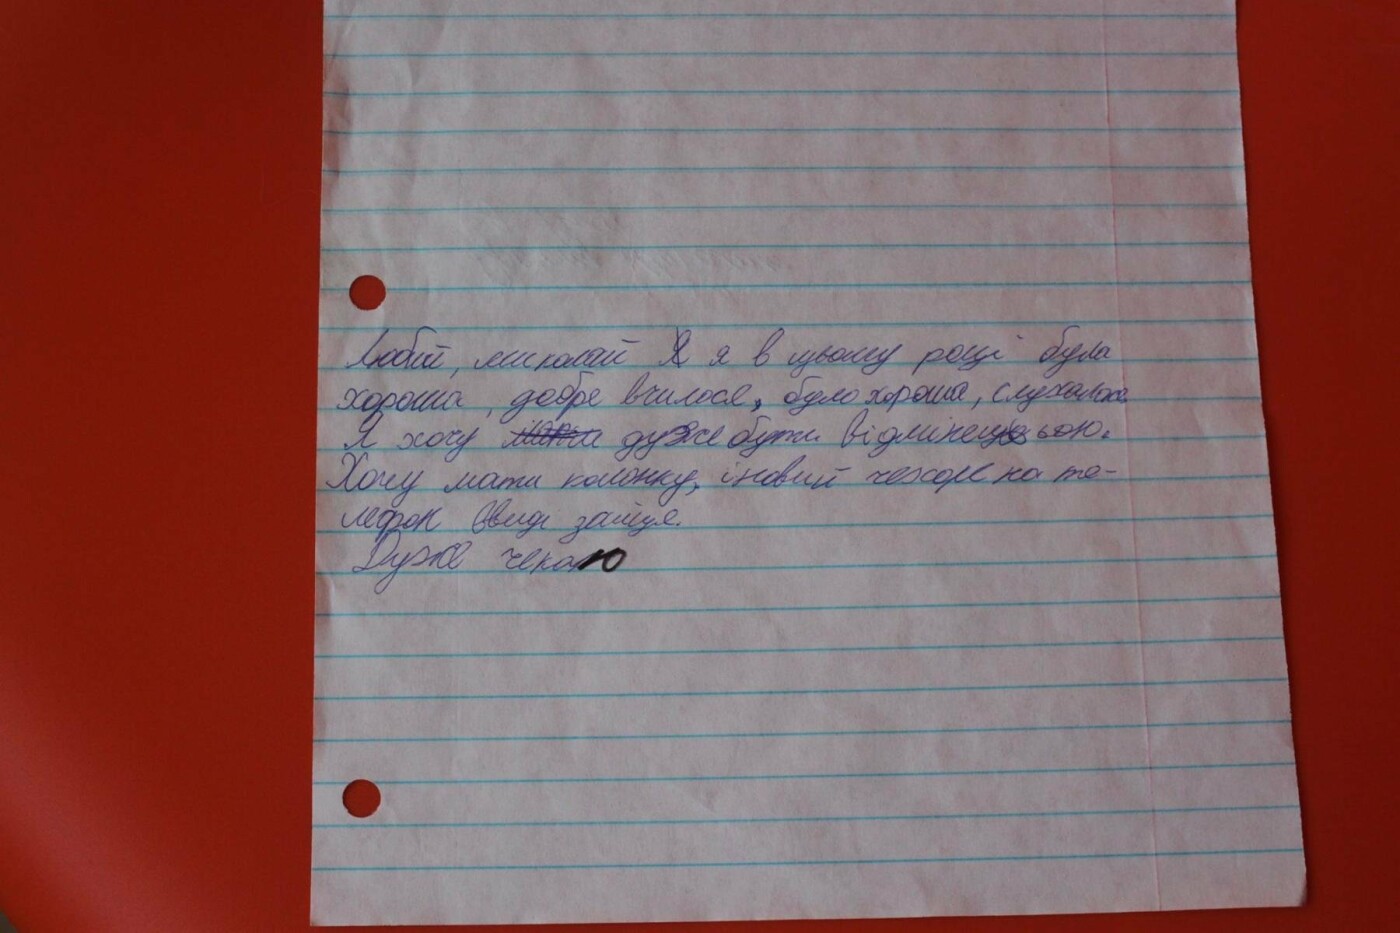 Любий, миколай я в цьому році була
хороша, добре вчилося, було хороша, слухалась
Я хочу дуже бути відмінецьою.
Хочу мати колонку, і новий чехол на те-
лефон ввиді зайця.
Дуже чекаю